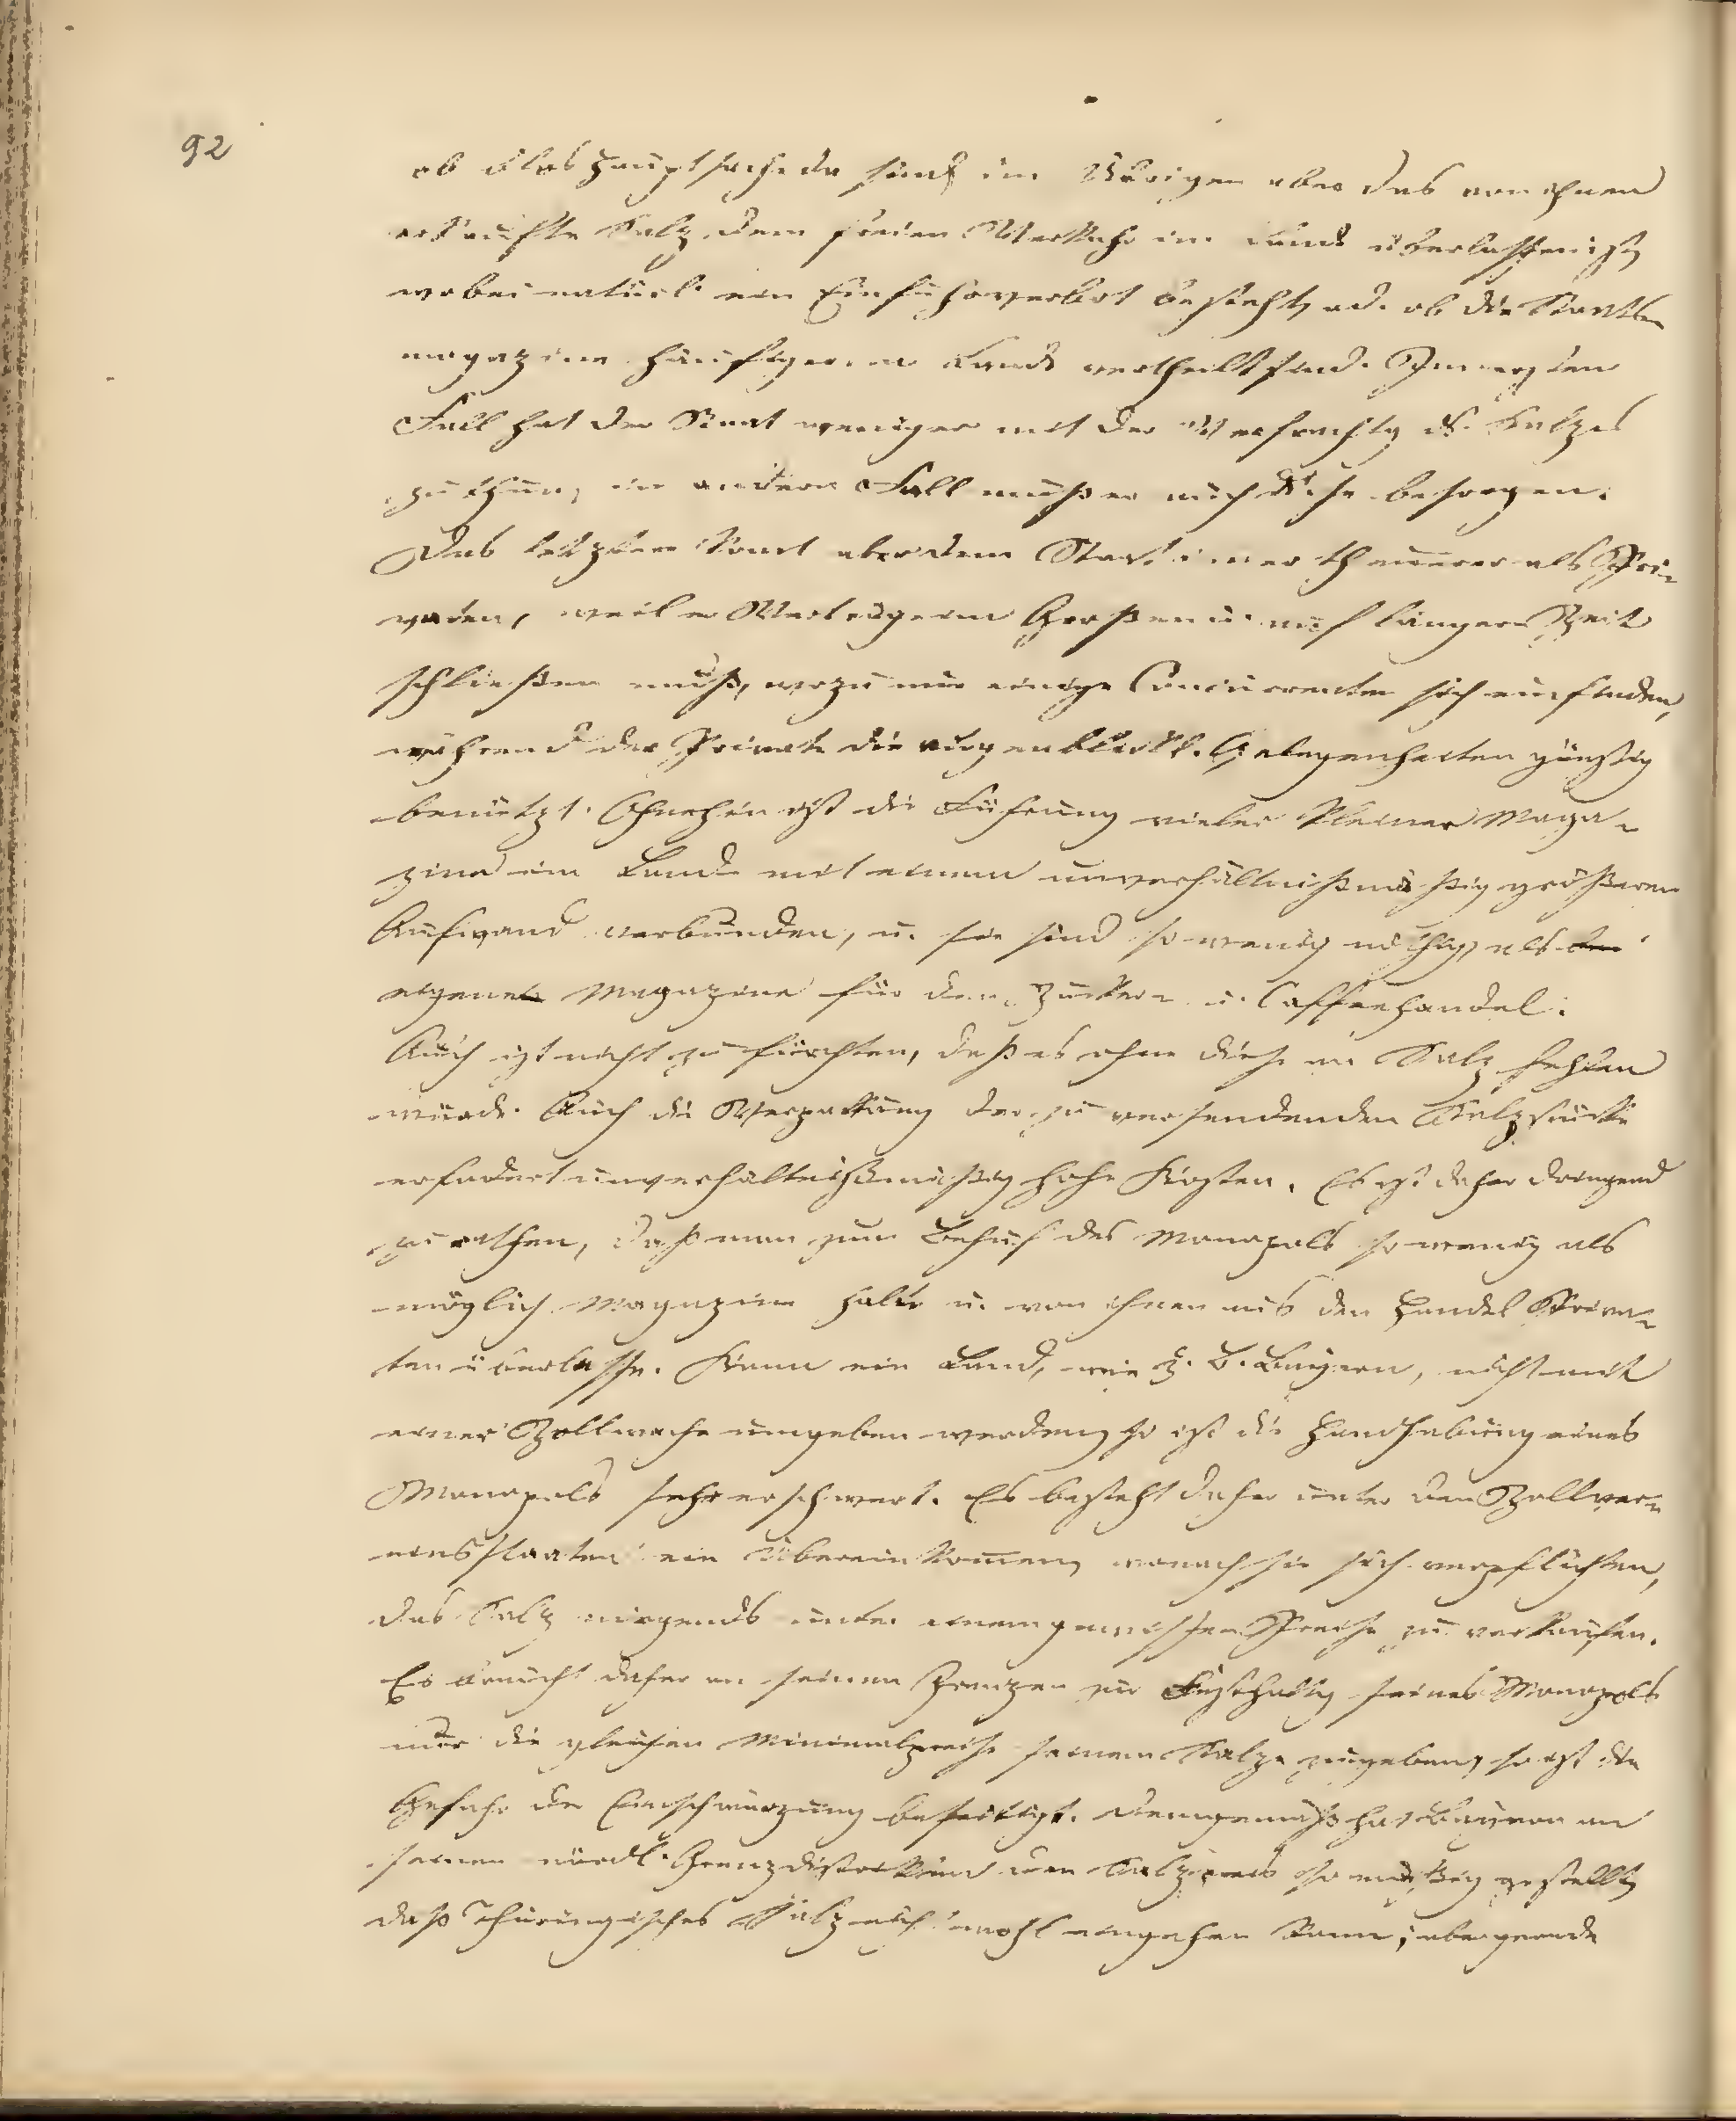 92
ob blos hauptsächl. da sind im Übrigen aber das von ihnen
erkaufte Salz dem freien Verkehr im Lande überlassen ist,
wobei natürl. ein Einfuhrverbot besteht, od. ob die Staats-
magazine häufiger im Lande vertheilt sind. Im ersten
Fall hat der Staat weniger mit der Verfrachtg d. Salzes
zu thun, im andern Fall muß er auch diese besorgen.
Das letztere kömt aber dem Staat imer theuerer als Pri-
vaten, weil er Verträge im Großen u. auf längere Zeit
schließen muß, wozu nur einige Concurrenten sich einfinden,
während der Private die augenblickl. Gelegenheiten günstig
benützt. Ohnehin ist die Führung vieler kleiner Maga-
zine im Lande mit einem unverhältnißmäßig größeren
Aufwand verbunden, u. sie sind so wenig nöthig, als
eigene Magazine für den Zucker- u. Caffeehandel.
Auch ist nicht zu fürchten, daß es ohne diese an Salz fehlen
würde. Auch die Verpackung der zu versendenden Salzsäcke
erfodert unverhältnißmäßig hohe Kosten. Es ist daher dringend
zu rathen, daß man zum Behuf des Monopols so wenig als
möglich Magazine halte u. von ihnen aus den Handel Priva-
ten überlasse. Kann ein Land, wie z. B. Bayern, nicht mit
einer Zollwache umgeben werden, so ist die Handhabung eines
Monopols sehr erschwert. Es besteht daher unter den Zollver-
einsstaaten ein Übereinkomen, wonach sie sich verpflichten,
das Salz nirgends unter einem gewissen Preise zu verkaufen.
Es braucht daher an seinen Grenzen zur Festhaltg seines Monopols
nur die gleichen Minimalpreise seinem Salze zu geben, so ist die
Gefahr der Einschwärzung beseitigt. Demgemäß hat Bayern an
seinen nördl. Grenzdistrikten den Salzpreis so mäßig gestellt,
daß Thüringisches Salz nicht wohl eingehen kann; aber gerade